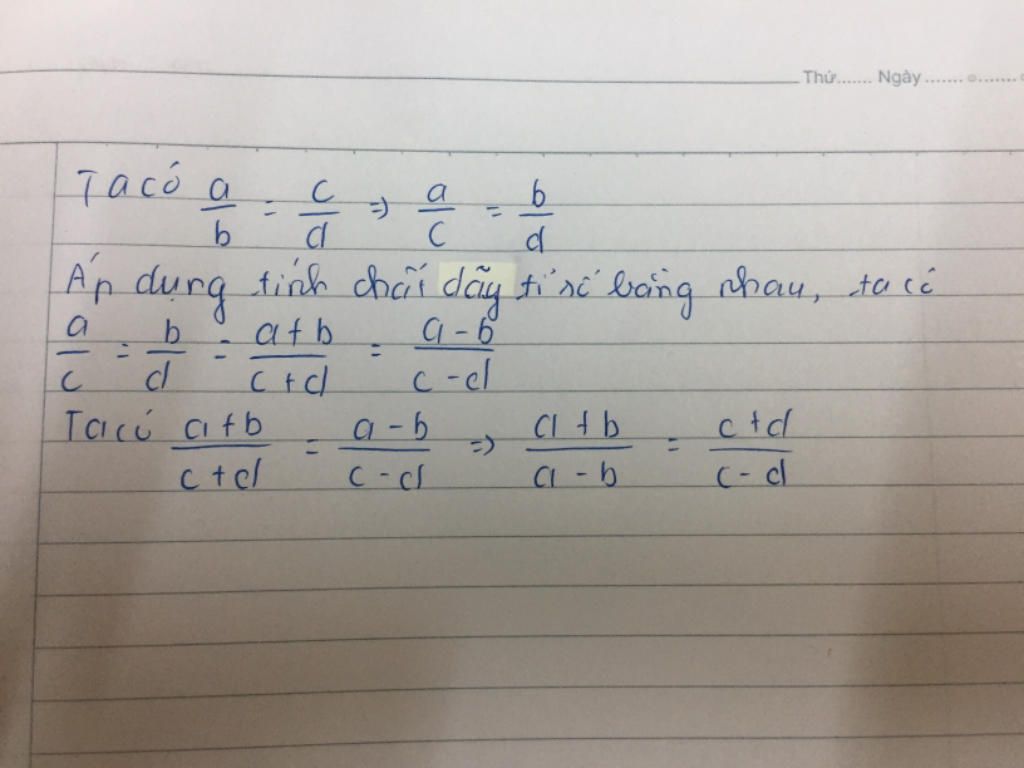 Thứ....... Ngày.......
Ta có a/b = c/d => a/c = b/d
Áp dụng tính chất dãy tỉ số bằng nhau, ta có
a/c = b/d = a+b/c+d = a-b/c-d
Ta có a+b/c+d = a-b/c-d => a+b/a-b = c+d/c-d